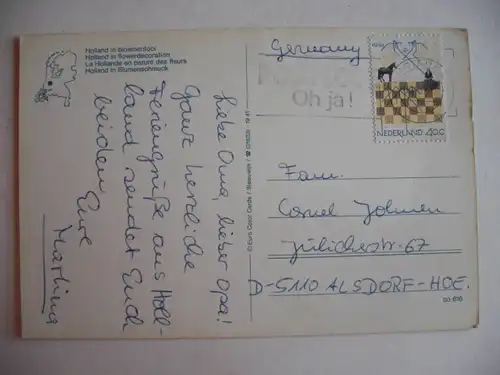 Holland in bloementooi
Holland in flowerdecoration
La Hollande en parure des fleurs
Holland in Blumenschmuck
Liebe Oma, lieber Opa!
Ganz herzliche
Feriengrüße aus Hol-
land sendet Euch
beiden
Eure
Martina
© Euro Color Cards
Germany
Oh ja!
NEDERLAND 40c
Fam.
Cornel Johnen
Jülicherstr. 67
D-5110 ALSDORF-HOE.